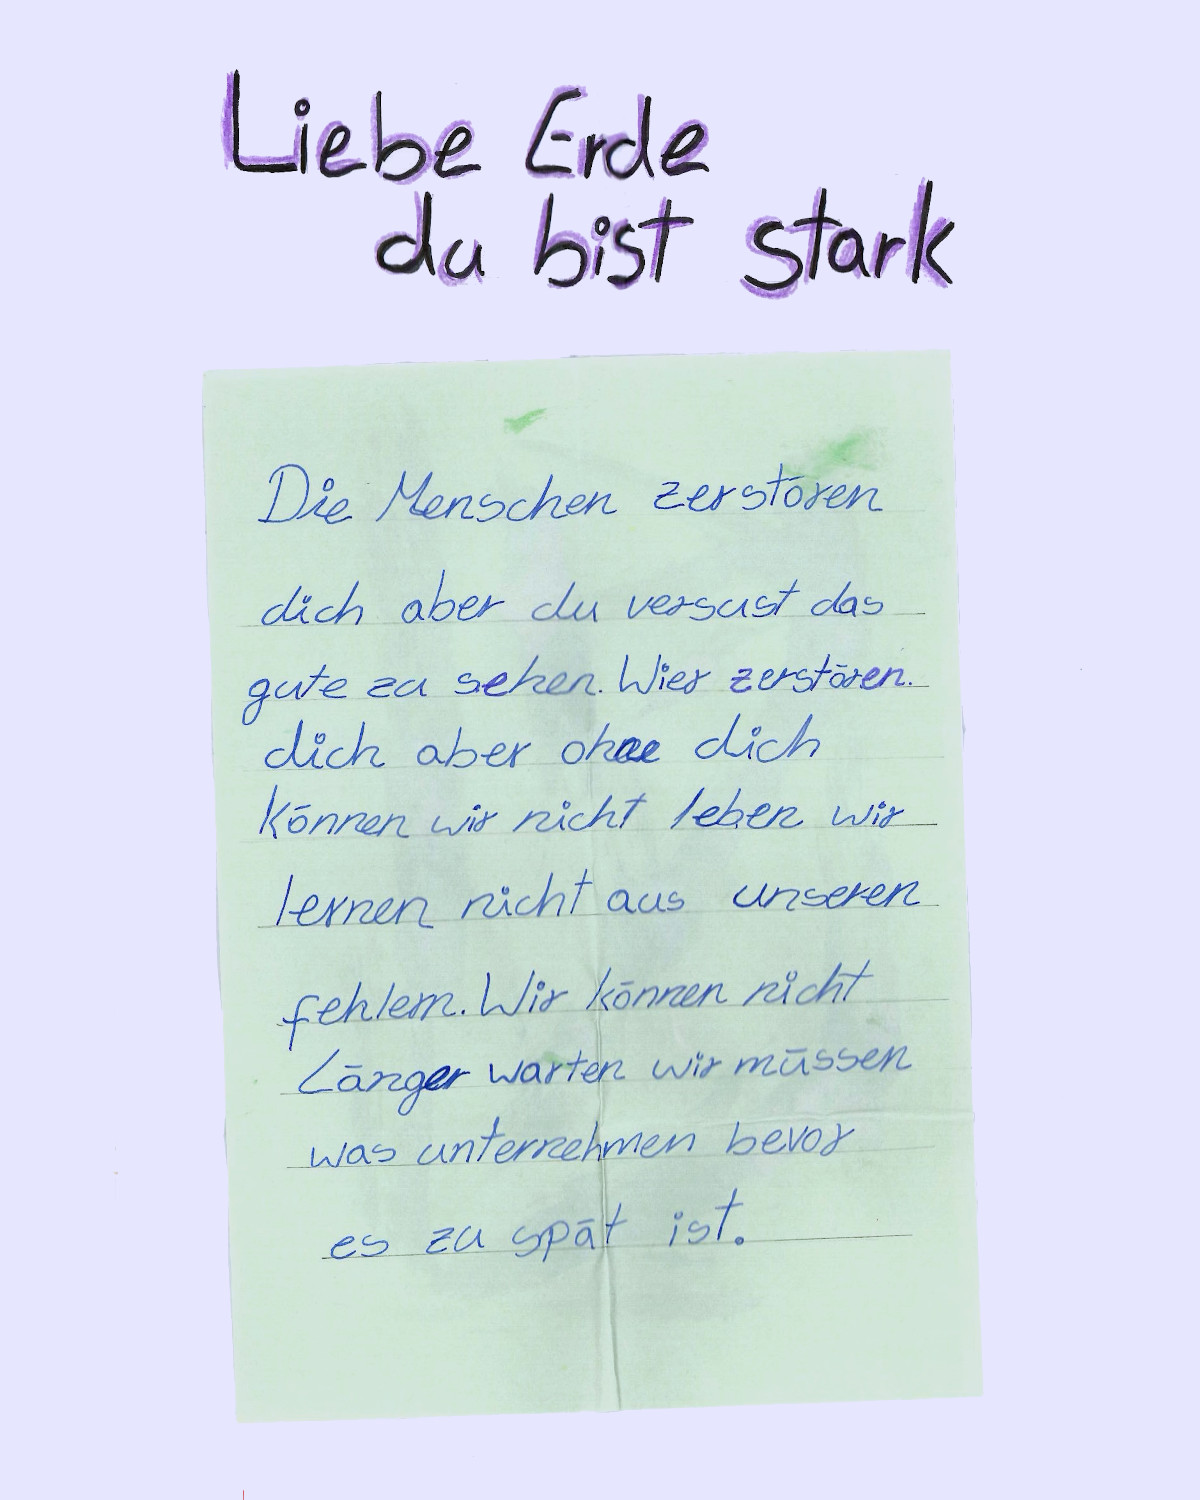 Liebe Erde
du bist stark
Die Menschen zerstören
dich aber du versust das
gute zu sehen. Wier zerstören.
dich aber ohne dich
können wir nicht leben wir
lernen nicht aus unseren
fehlern. Wir können nicht
Länger warten wir müssen
was unternehmen bevor
es zu spät ist.